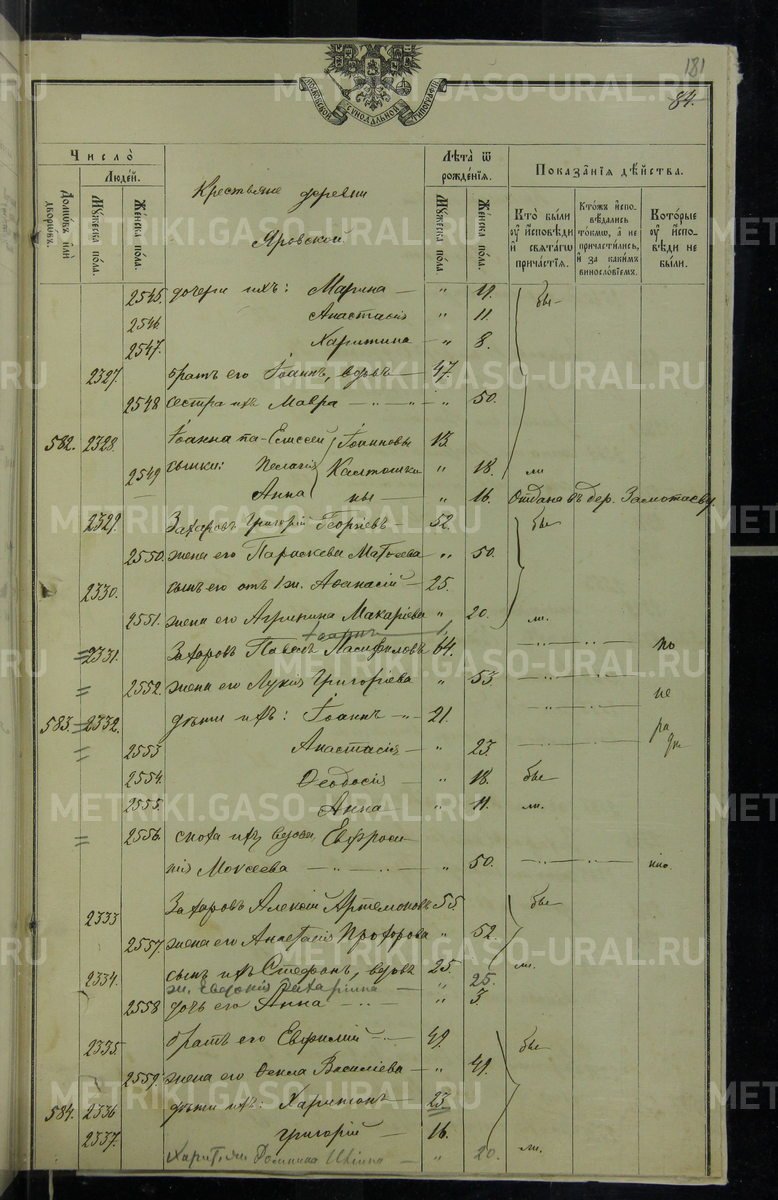 181
84.
МОСКОВСКОЙ СѴНОДАЛЬНОЙ ТИПОГРАФІИ
Число̀
Людей.
Домо́въ илѝ дворо́въ.
Мꙋжеска по́ла.
Же́нска по́ла.
Крестьяне деревни
Яровской
Лѣ́та ѿ рожде́нїѧ.
Мꙋжеска по́ла.
Же́нска по́ла.
Показа́нїѧ дѣ́йства.
Кто̀ бы́ли ᲂу҆ и҆сповѣди и҆ свѧта́гѡ прича́стїѧ.
Кто́жъ и҆спо-вѣ́дались то́кмѡ, а҆ не причасти́лись, и҆ за каки́мъ винослѡ́вїемъ.
Кото́рые ᲂу҆ и҆спо-вѣ́ди не бы́ли.
2545. дочери ихъ: Марина — " 19. бы-
2546 Анастасія " 11.
2547. Харитина — " 8.
2327. братъ его Іоаннъ, вдовъ — 47.
2548 сестра ихъ Мавра — " — " 50.
582. 2328. Іоанна па- Елисей Іоанновы 13.
2549 сынки: Пелагія Калташки " 18. ли
— Анна ны — " 16. Отдана въ дер. Замотаеву
2329. Захаровъ Григорій Георгіевъ — 52. бы
2550. жена его Параскева Матѳеева " 50.
2330. сынъ его отъ 1 ж. Аѳанасій — 25.
2551. жена его Агрипина Макаріева " 20. ли.
2331. Захаровъ Павелъ Панфиловъ 64. по
2552. жена его Лукія Григоріева " 53. не
583. 2332. дѣти ихъ: Іоаннъ — " — 21. ра
2553 Анастасія — " 23. дѣ
2554. Ѳеодосія — " 18. бы
2555. Анна — " 11. ли.
2556. сноха ихъ вдова, Евфроси
нія Мокеева " 50. нію.
2333 Захаровъ Алексій Артемоновъ 55 бы
2557. жена его Анастасія Прохорова " 52.
2334. сынъ ихъ Стефанъ, вдовъ 25. ли.
ж. Евдокія Захаріина — " 25.
2558 дочь его Анна " 3.
2335. братъ его Евфимій — 49. бы
2559. жена его Ѳекла Василіева — " 49.
584. 2336 дѣти ихъ: Харитонъ — 23
2337. Григорій — 16.
Харит. ж. Домнина — " 20. ли.
METRIKI.GASO-URAL.RU